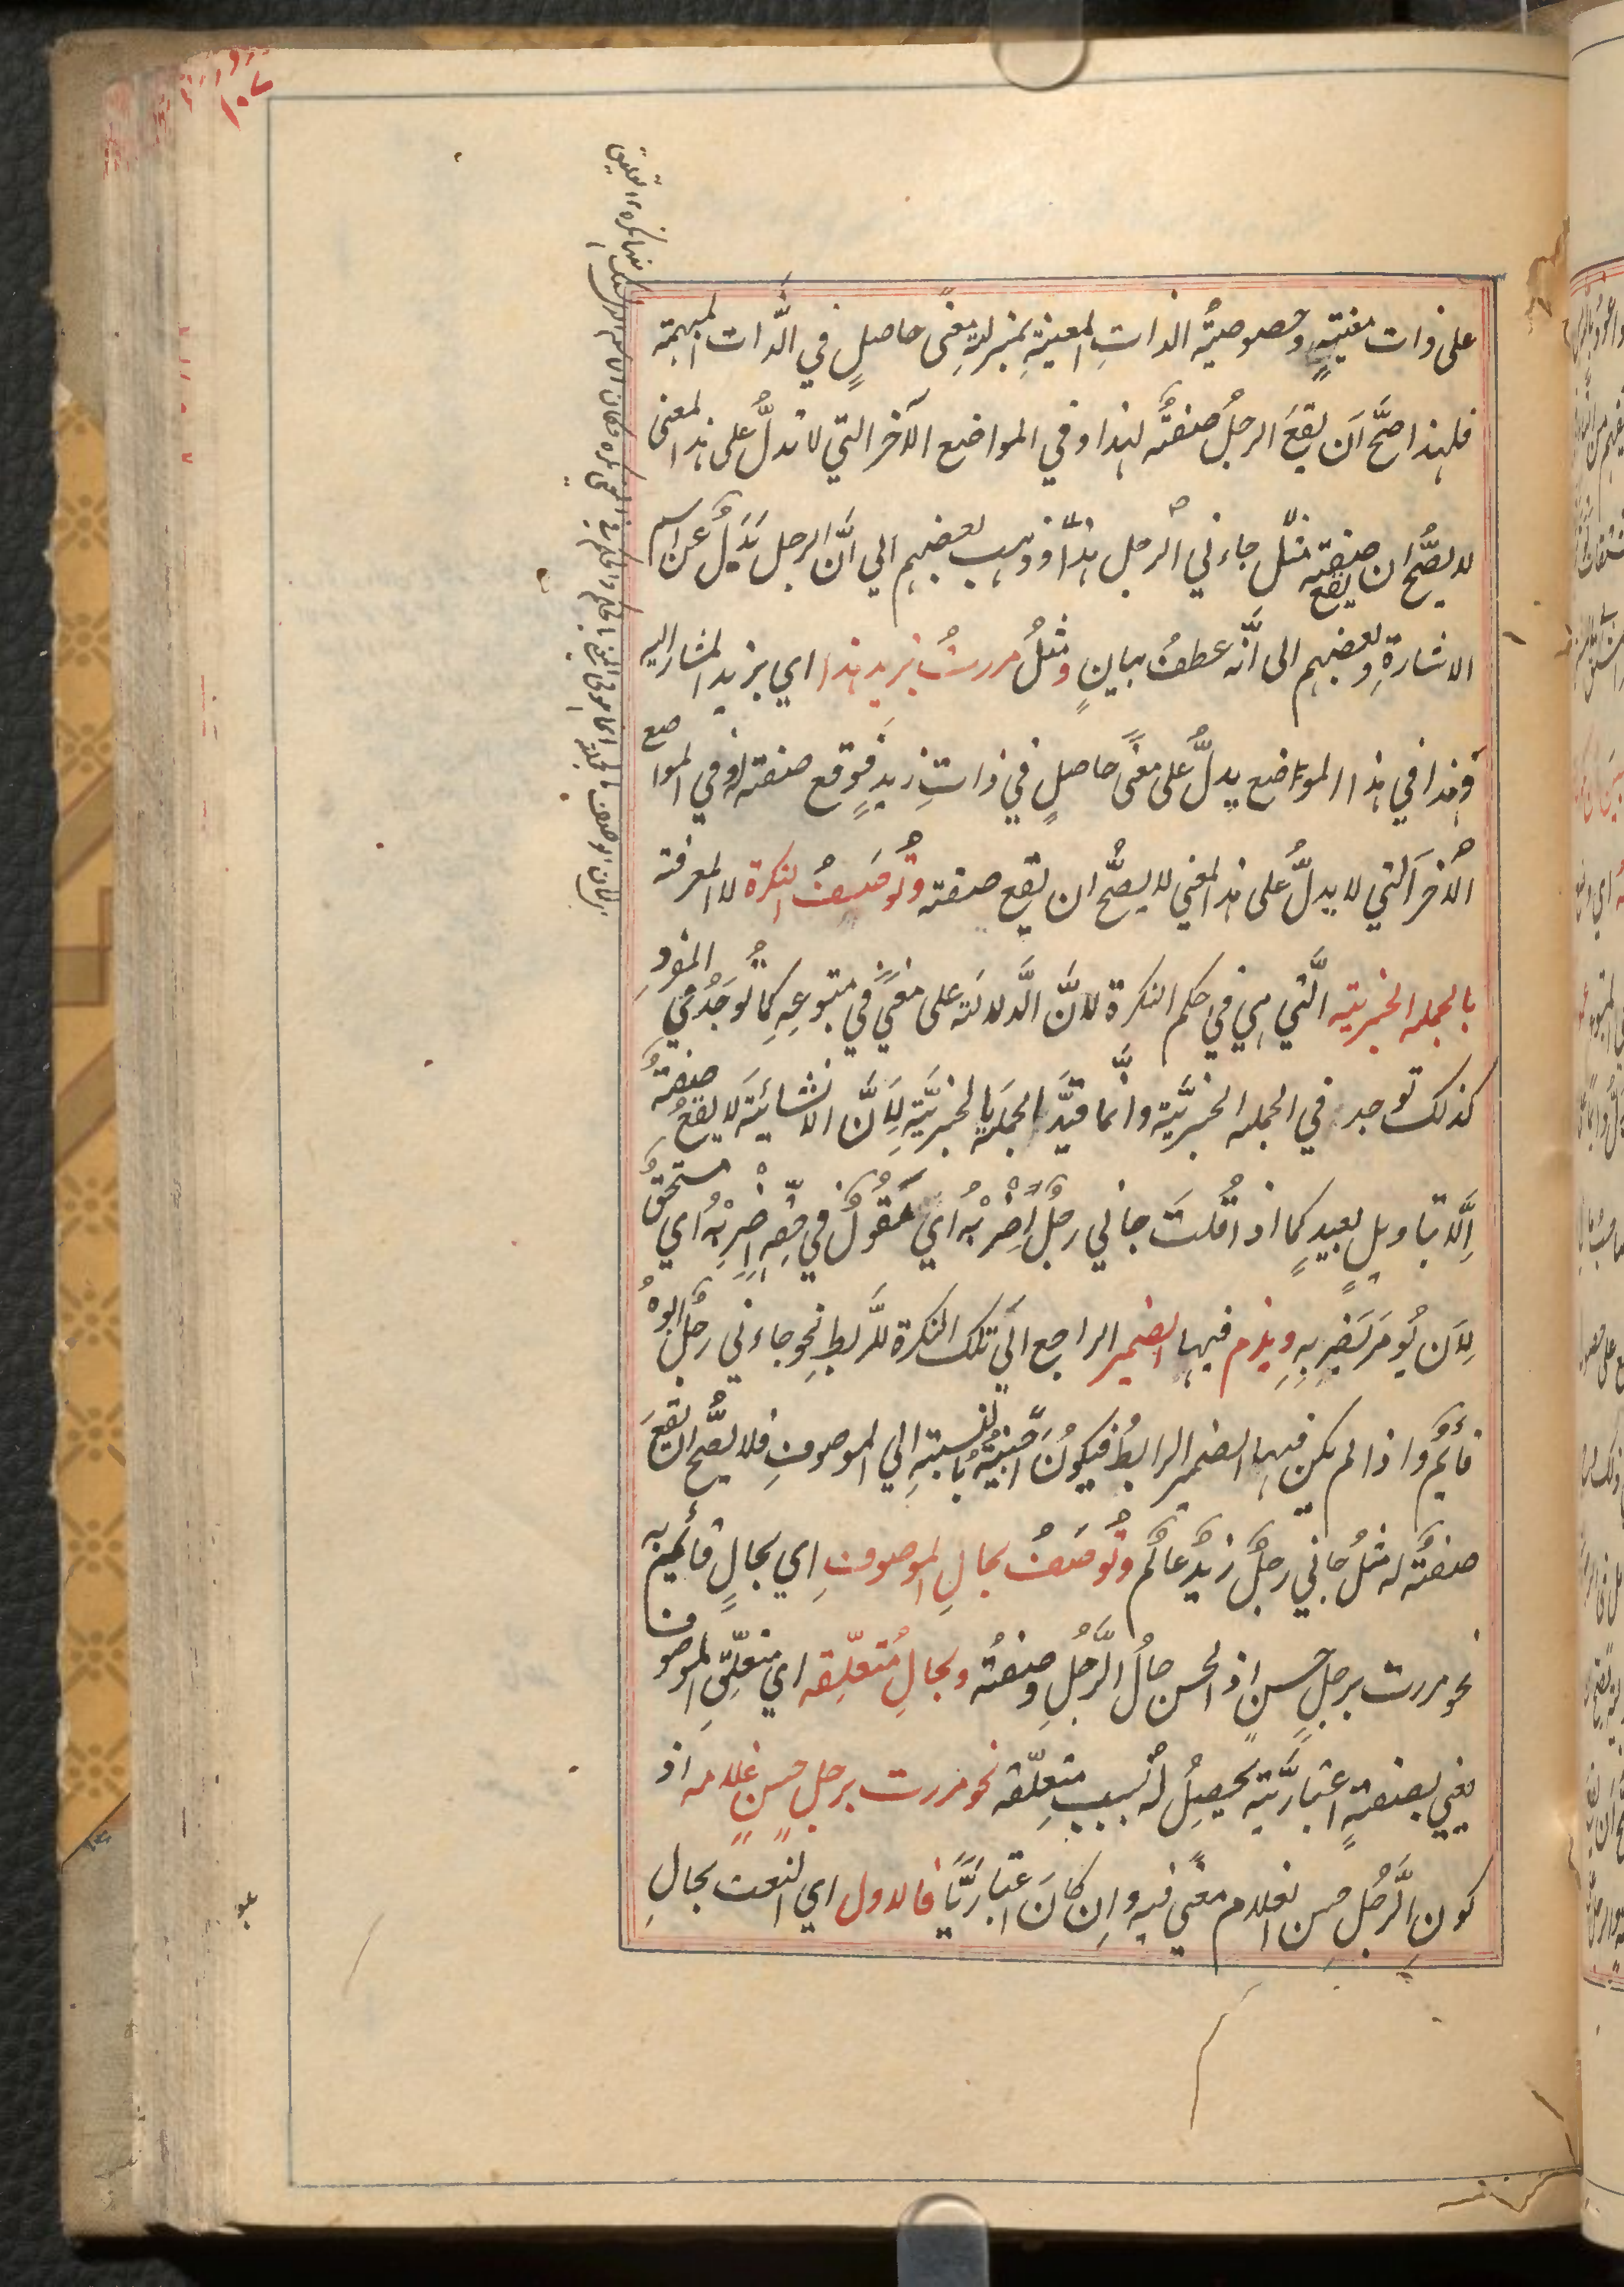 ١٠٧
على ذات معينةٍ وخصوصيةُ الذاتِ المعينةِ بمنزلةِ معنًى حاصلٍ في الذَّات المبهمة
فلهذا صحَّ اَن يقعَ الرجلُ صفةً لهذا وفي المواضع الآخر التي لا تدلُّ على هذا المعنى
لا يصُّح ان يقع صفة مثل جاءني الرجل هذا وذهب بعضهم الى انَّ الرجل بَدَلٌ عن اسم
الاشارةِ وبعضهم الى اَنَّه عطفُ بيانٍ ومثلُ مررتُ بزيد هذا اي بزيد المشار اليه
وهذا في هذا المواضع يدلُّ على معنًى حاصلٍ في ذاتِ زيدٍ فوقع صفة له وفي المواضع
الاُخر اَلتي لا يدلُّ على هذا المعنى لا يصُّح ان يقع صفة وتُوصَفُ النكرة لا المعرفة
بالجمله الخبرية الَّتي هي في حكم النكرة لانَّ الدَّلالة على معنًى في متبوعِهِ كما تُوجَدُ في المفردِ
كذلك توجد في الجمله الخبريَّة وانَّما قيَّد الجملة بالخبريَّة لِاَنَّ الانشائيَّة لا يقعُ صفةً
اِلَّا بتاويلٍ بعيدٍ كما اذا قُلتَ جاني رجلٌ اِضْرِبْهُ اي مقُولٌ في حقِّهِ اِضْرِبْهُ اي مستحقٌّ
لِاَن يُومَرَ بضربِهِ ويلزم فيها الضمير الراجع الى تلك النكرة للَّربطِ نحو جاءني رجلٌ ابوهُ
قائمٌ واذا لم يكن فيها الضمير الرابطُ فيكونُ اجنبيَّةً بالنسبةِ الى الموصوفِ فلا يصُّح ان يقعَ
صفةً له مثلُ جاني رجلٌ زيدٌ عالمٌ وتُوصَفُ بحالِ الموصوفِ اي بحالٍ قائمةٍ به
نحو مررت برجلٍ حسنٍ اذ الحسن حالُ الرَّجُلِ وصفتُه وبحالِ مُتعلِّقه اي متعلِّقِ الموصوف
يعني بصفةٍ اعتباريَّةٍ يحصِلُ له بسببِ متعلِّقه نحو مررت برجلٍ حسنٍ غلامه اذ
كونِ الرَّجُلِ حسن الغلام معنًى فيه واِن كانَ اعتباريًّا فالاول اي النعت بحالِ